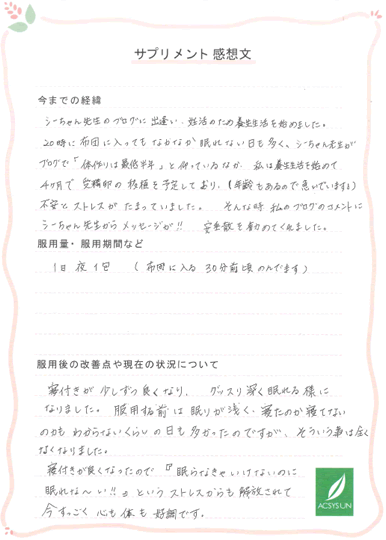 サプリメント 感想文
今までの経緯
シーちゃん先生のブログに出逢い、妊活のため養生生活を始めました。
20時に布団に入ってもなかなか眠れない日も多く、シーちゃん先生が
ブログで「体作りは最低半年」と仰っているなか、私は養生生活を始めて
4ヶ月で受精卵の移植を予定しており、(年齢もあるので急いでいます💧)
不安とストレスがたまっていました。そんな時 私のブログのコメントに
シーちゃん先生からメッセージが!! 安生散を勧めてくれました。
服用量・服用期間など
1日 夜 1包 (布団に入る 30分前頃 のんでます)
服用後の改善点や現在の状況について
寝付きが少しずつ良くなり、グッスリ深く眠れる様に
なりました。服用する前は眠りが浅く、寝たのか寝てない
のかも わからないくらいの日も多かったのですが、そういう事は全く
なくなりました。
寝付きが良くなったので『眠らなきゃいけないのに
眠れな〜い!!』という ストレスからも解放されて
今すっごく 心も体も 好調です。
ACSYSUN